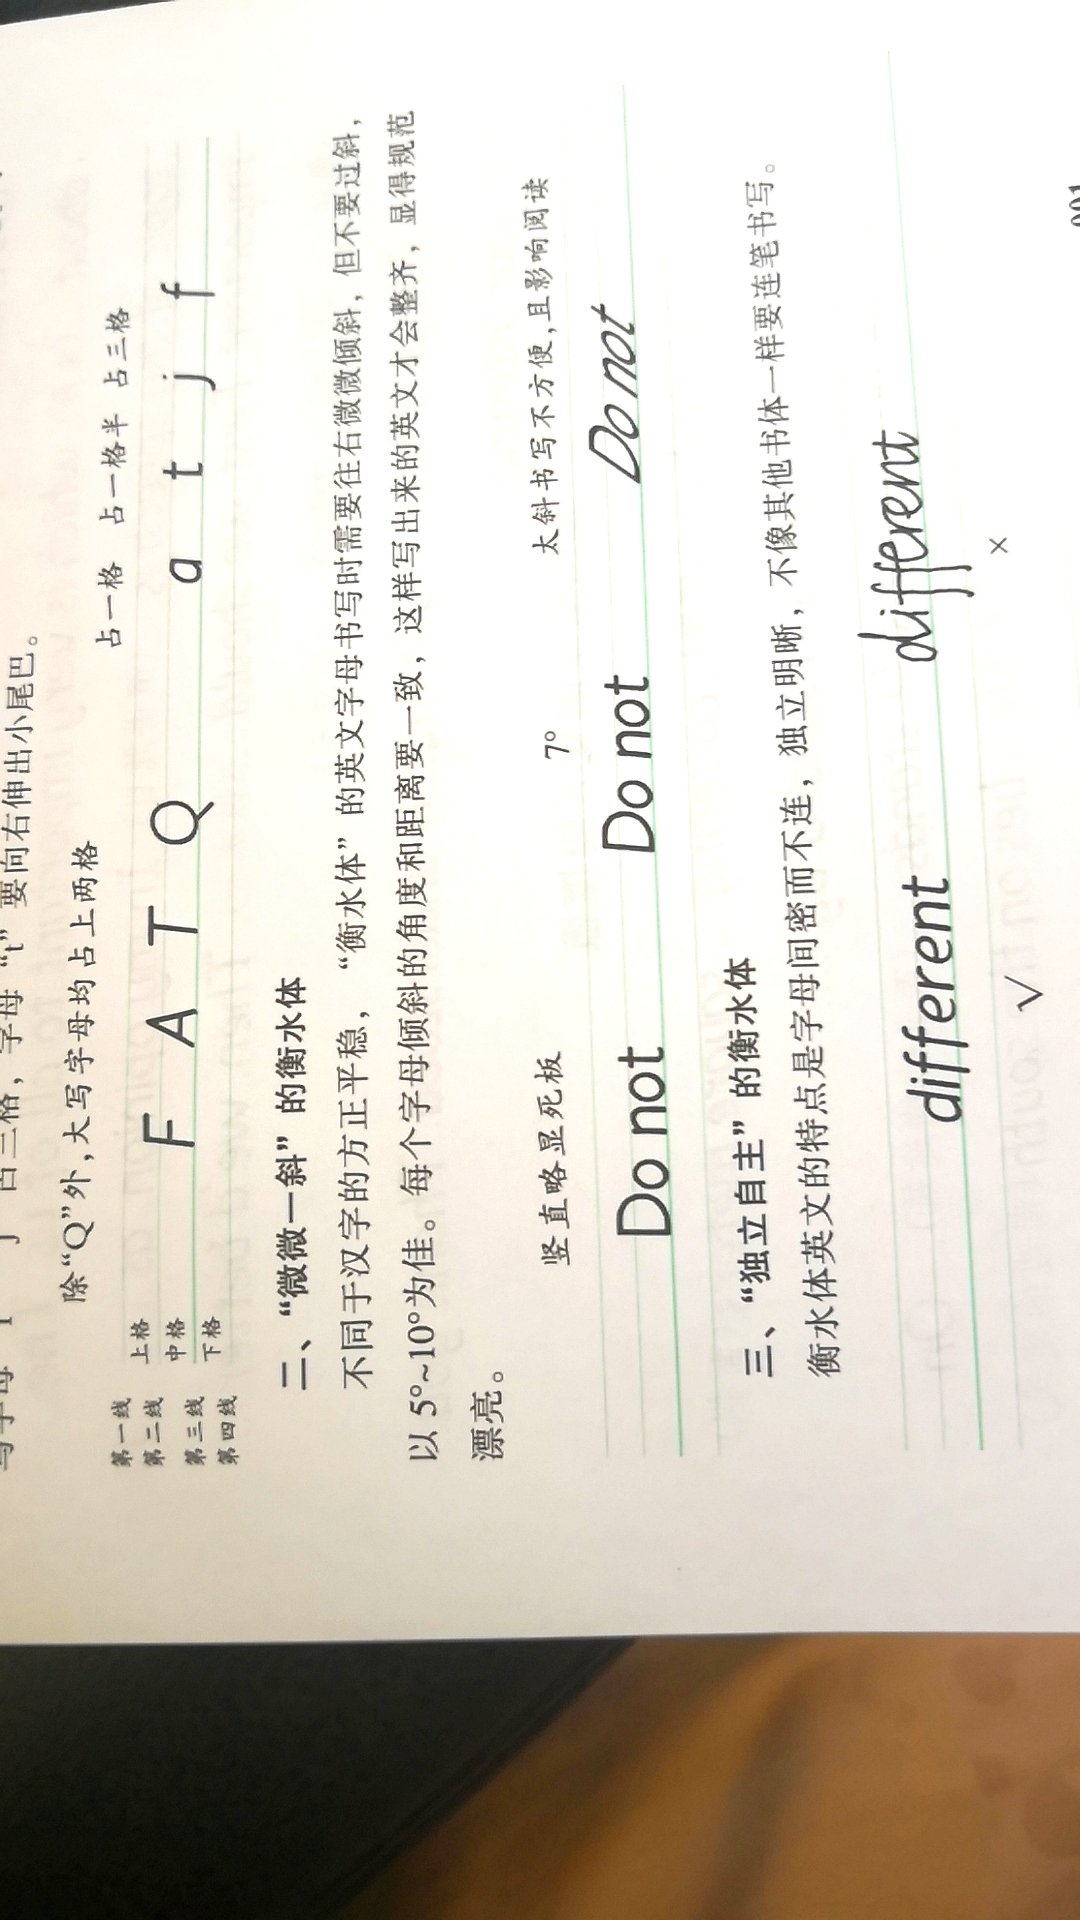 要向右伸出小尾巴。
除“Q”外,大写字母均占上两格 占一格 占一格半 占三格
第一线
第二线
第三线
第四线
上格
中格
下格
F A T Q a t j f
二、“微微一斜”的衡水体
不同于汉字的方正平稳，“衡水体”的英文字母书写时需要往右微微倾斜，但不要过斜，
以 5°~10°为佳。每个字母倾斜的角度和距离要一致，这样写出来的英文才会整齐，显得规范
漂亮。
竖直略显死板 7° 太斜书写不方便,且影响阅读
Do not Do not Do not
三、“独立自主”的衡水体
衡水体英文的特点是字母间密而不连，独立明晰，不像其他书体一样要连笔书写。
different different
√ ×